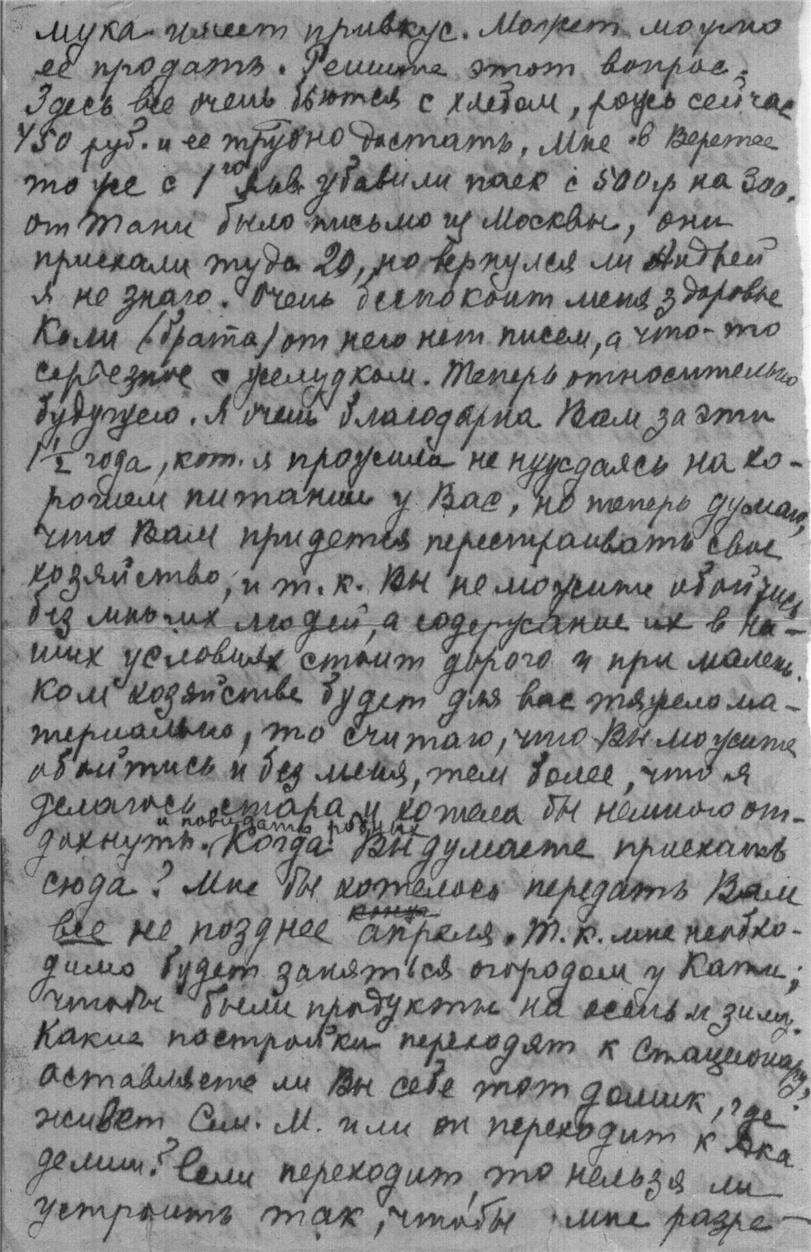 мука имеет привкус. Может можно
ее продать. Решите этот вопрос.
Здесь все очень бьются с хлебом, рожь сейчас
450 руб. и ее трудно достать. Мне в Веретее
тоже с 1го янв. убавили паек с 500 гр на 300.
от Тани было письмо из Москвы, они
приехали туда 20, но вернулся ли Андрей
я не знаю. Очень беспокоит меня здоровье
Коли (брата) от него нет писем, а что-то
серьезное с желудком. Теперь относительно
будущего. Я очень благодарна Вам за эти
1 1/2 года, кот. я прожила не нуждаясь на хо-
рошем питании у Вас, но теперь думаю,
что Вам придется перестраивать свое
хозяйство, и т.к. Вы не можите обойтись
без многих людей, а содержание их в на-
ших условиях стоит дорого и при малень-
ком хозяйстве будет для вас тяжело ма-
териально, то считаю, что Вы можите
обойтись и без меня, тем более, что я
делаюсь стара и хотела бы немного от-
и повидать родных
дохнуть. Когда Вы думаете приехать
сюда? Мне бы хотелось передать Вам
все не позднее конца апреля. Т.к. мне необхо-
димо будет заняться огородом у Кати,
чтобы были продукты на осень и зиму.
Какие постройки переходят к стационару,
оставляете ли Вы себе тот домик, где
живет Сем. М. или он переходит к Ака
демии? Если переходит, то нельзя ли
устроить так, чтобы мне разре-